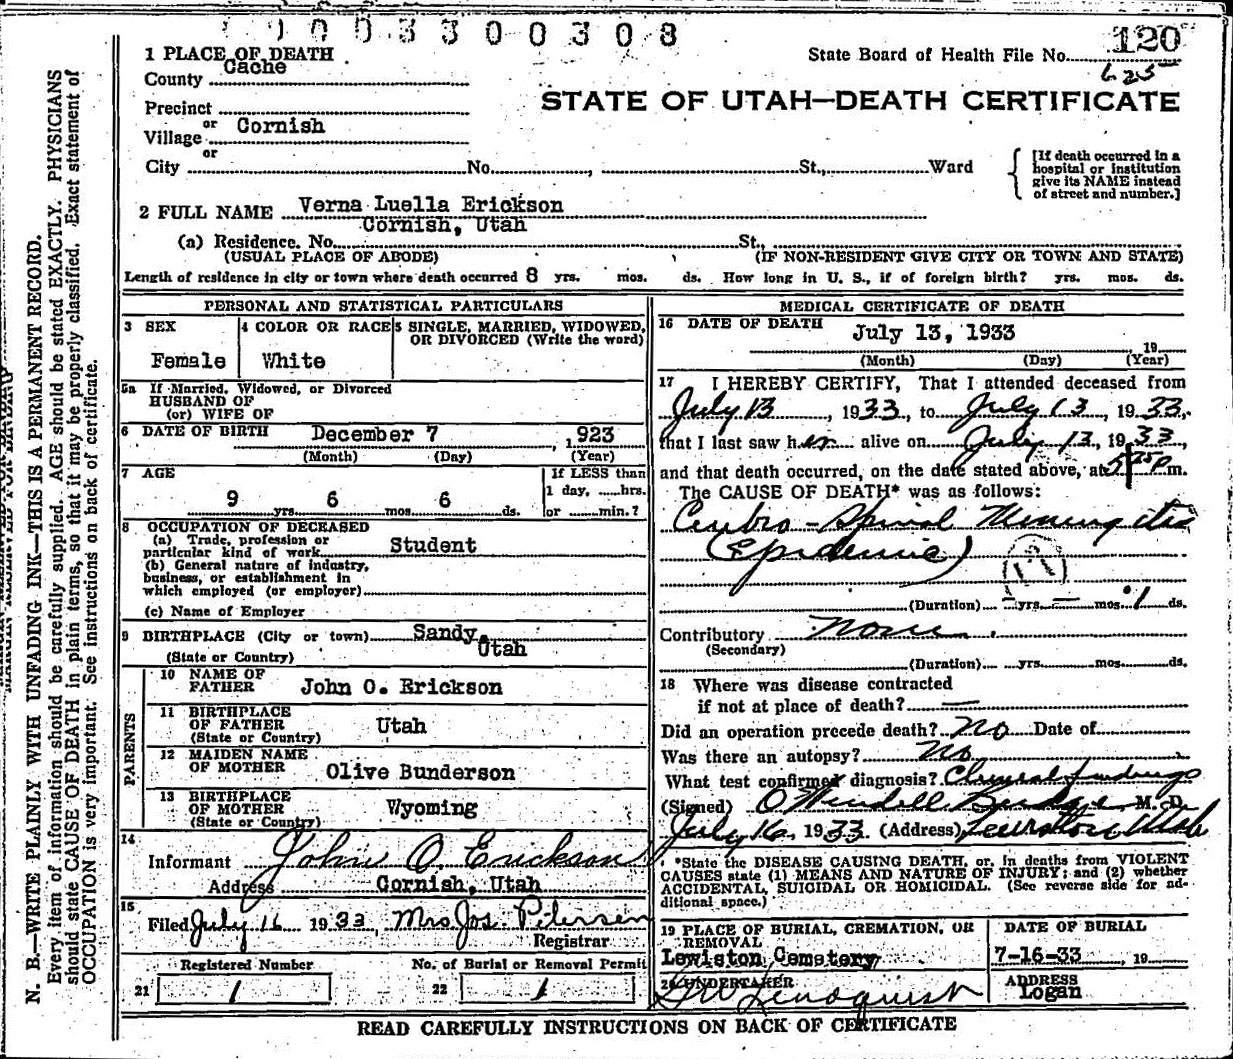 1003300308
1 PLACE OF DEATH
State Board of Health File No. 120
625
County Cache
STATE OF UTAH—DEATH CERTIFICATE
Precinct
or
Village Cornish
or
City No. , St., Ward
[If death occurred in a
hospital or institution
give its NAME instead
of street and number.]
2 FULL NAME Verna Luella Erickson
Cornish, Utah
(a) Residence. No. St.,
(USUAL PLACE OF ABODE) (IF NON-RESIDENT GIVE CITY OR TOWN AND STATE)
Length of residence in city or town where death occurred 8 yrs. mos. ds. How long in U. S., if of foreign birth? yrs. mos. ds.
PERSONAL AND STATISTICAL PARTICULARS
3 SEX
Female
4 COLOR OR RACE
White
5 SINGLE, MARRIED, WIDOWED,
OR DIVORCED (Write the word)
5a If Married, Widowed, or Divorced
HUSBAND OF
(or) WIFE OF
6 DATE OF BIRTH December 7 , 1923
(Month) (Day) (Year)
7 AGE
9 yrs. 6 mos. 6 ds.
If LESS than
1 day, ......hrs.
or ......min.?
8 OCCUPATION OF DECEASED
(a) Trade, profession or
particular kind of work Student
(b) General nature of industry,
business, or establishment in
which employed (or employer)
(c) Name of Employer
9 BIRTHPLACE (City or town) Sandy,
Utah
(State or Country)
PARENTS
10 NAME OF
FATHER John O. Erickson
11 BIRTHPLACE
OF FATHER Utah
(State or Country)
12 MAIDEN NAME
OF MOTHER Olive Bunderson
13 BIRTHPLACE
OF MOTHER Wyoming
(State or Country)
14
Informant John O. Erickson
Address Cornish, Utah
15
Filed July 16 1933, Mrs Jos. Petersen
Registrar
Registered Number No. of Burial or Removal Permit
21 1 22 1
MEDICAL CERTIFICATE OF DEATH
16 DATE OF DEATH July 13, 1933
19
(Month) (Day) (Year)
17 I HEREBY CERTIFY, That I attended deceased from
July 13, 1933, to July 13, 1933,
that I last saw her alive on July 13, 1933,
and that death occurred, on the date stated above, at m.
The CAUSE OF DEATH* was as follows:
Cerebro-Spinal Meningitis
(Epidemic)
(Duration) — yrs. — mos. 1 ds.
Contributory None
(Secondary)
(Duration) yrs. mos. ds.
18 Where was disease contracted
if not at place of death? —
Did an operation precede death? No Date of
Was there an autopsy? No
What test confirmed diagnosis? Clinical findings
(Signed) O Wendell Budge M. D.
July 16, 1933 (Address) Lewiston, Utah
*State the DISEASE CAUSING DEATH, or, in deaths from VIOLENT
CAUSES state (1) MEANS AND NATURE OF INJURY; and (2) whether
ACCIDENTAL, SUICIDAL OR HOMICIDAL. (See reverse side for ad-
ditional space.)
19 PLACE OF BURIAL, CREMATION, OR
REMOVAL
Lewiston Cemetery
DATE OF BURIAL
7-16-33, 19
20 UNDERTAKER
Lindquist
ADDRESS
Logan
READ CAREFULLY INSTRUCTIONS ON BACK OF CERTIFICATE
N. B.—WRITE PLAINLY WITH UNFADING INK—THIS IS A PERMANENT RECORD.
Every item of information should be carefully supplied. AGE should be stated EXACTLY. PHYSICIANS
should state CAUSE OF DEATH in plain terms, so that it may be properly classified. Exact statement of
OCCUPATION is very important. See instructions on back of certificate.